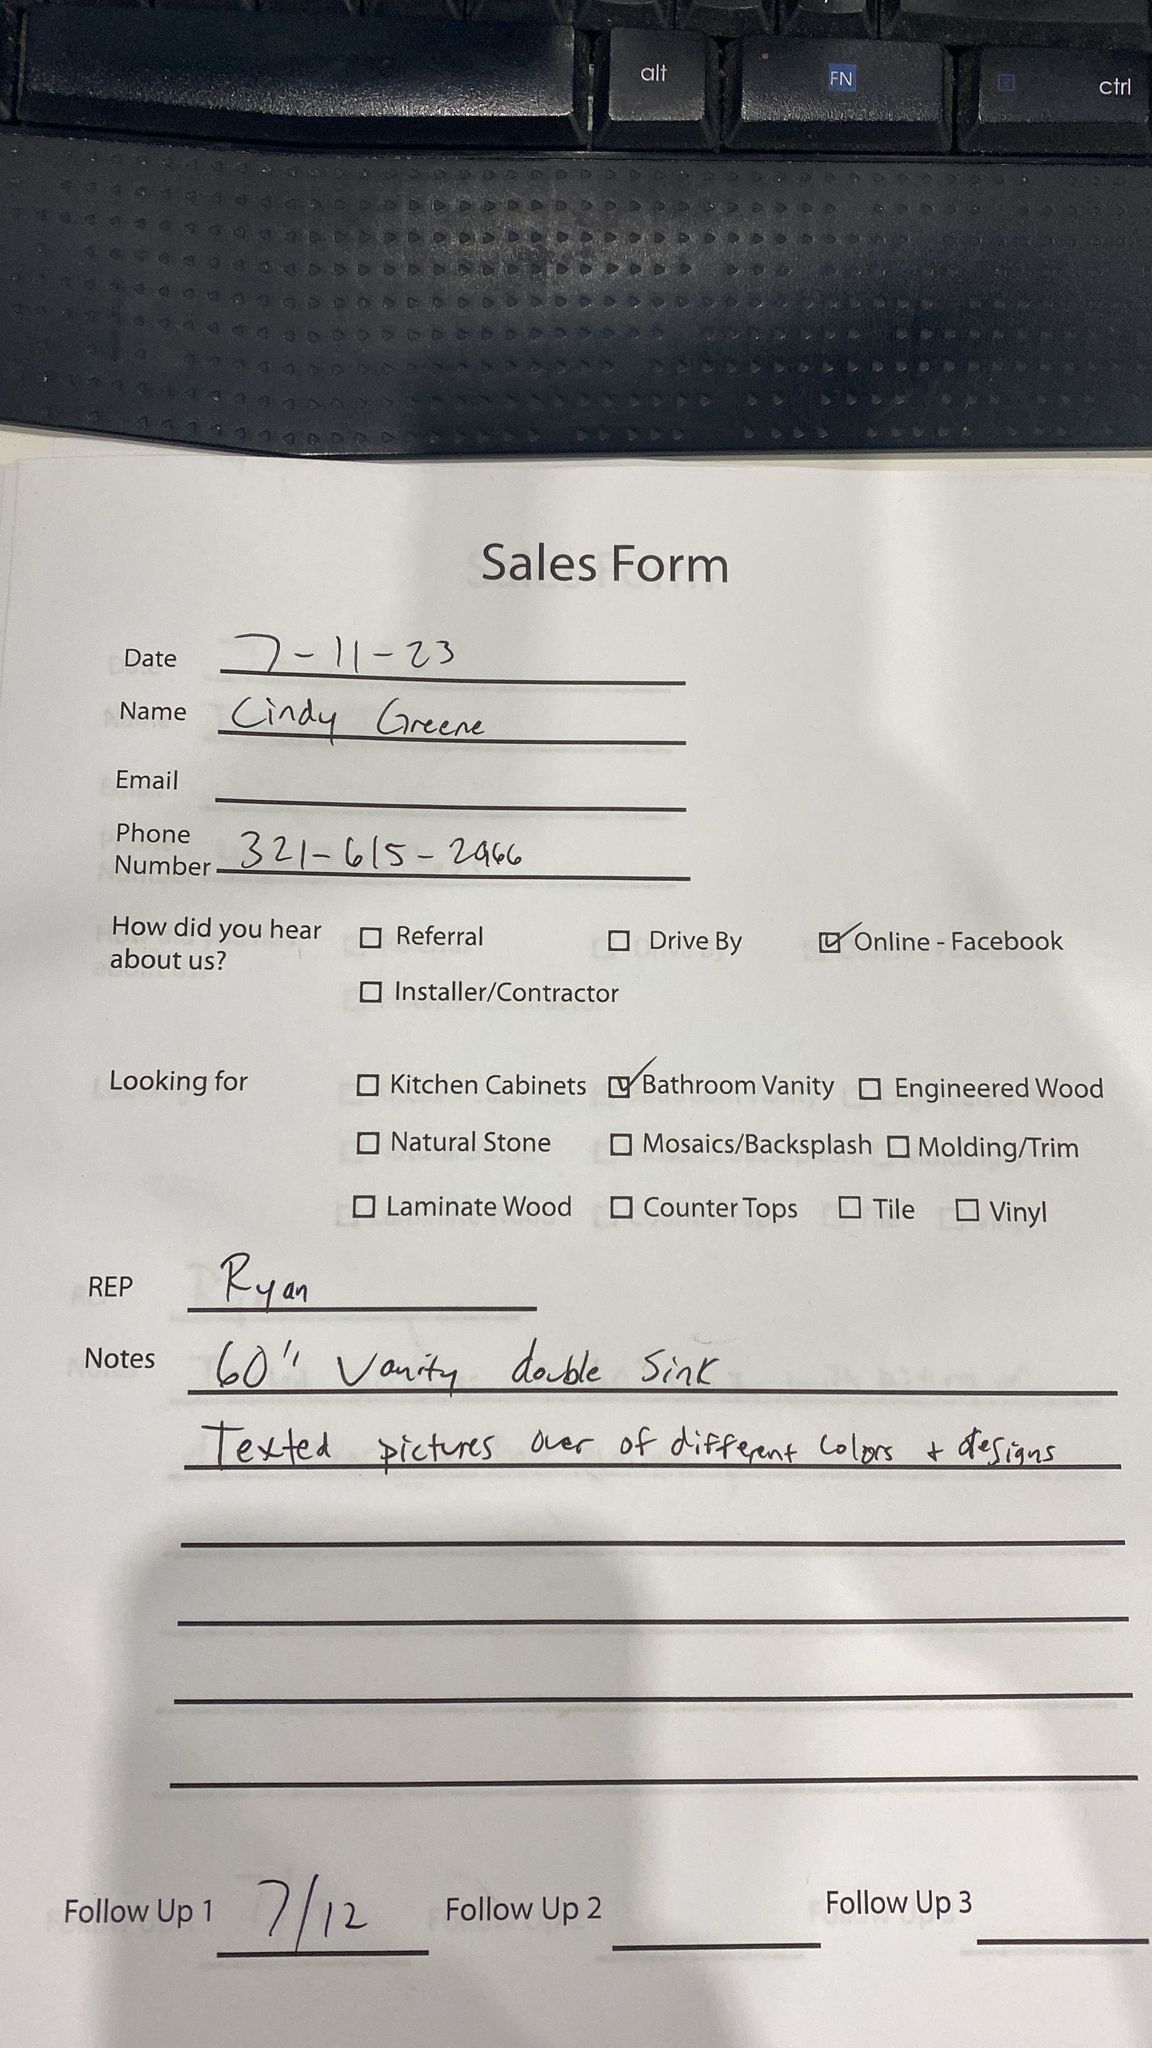 alt FN ctrl
Sales Form
Date 7-11-23
Name Cindy Greene
Email
Phone
Number 321-615-2966
How did you hear
about us?
☐ Referral ☐ Drive By ☑ Online - Facebook
☐ Installer/Contractor
Looking for ☐ Kitchen Cabinets ☑ Bathroom Vanity ☐ Engineered Wood
☐ Natural Stone ☐ Mosaics/Backsplash ☐ Molding/Trim
☐ Laminate Wood ☐ Counter Tops ☐ Tile ☐ Vinyl
REP Ryan
Notes 60" Vanity double Sink
Texted pictures over of different colors + designs
Follow Up 1 7/12 Follow Up 2 Follow Up 3